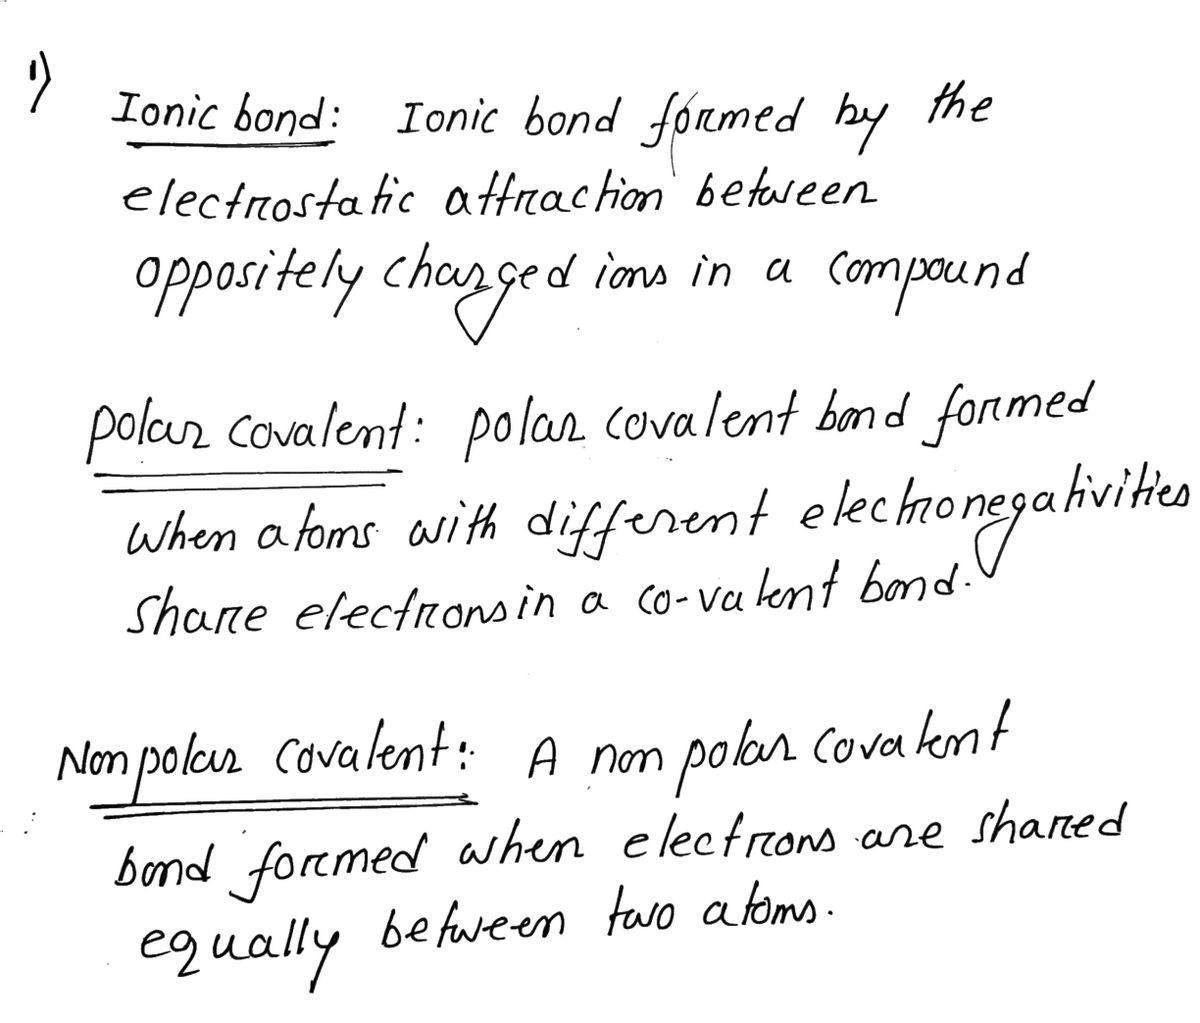 1)
Ionic bond: Ionic bond formed by the
electrostatic attraction between
oppositely charged ions in a compound
polar covalent: polar covalent bond formed
when atoms with different electronegativities
share electrons in a co-valent bond.
Non polar covalent: A non polar covalent
bond formed when electrons are shared
equally between two atoms.